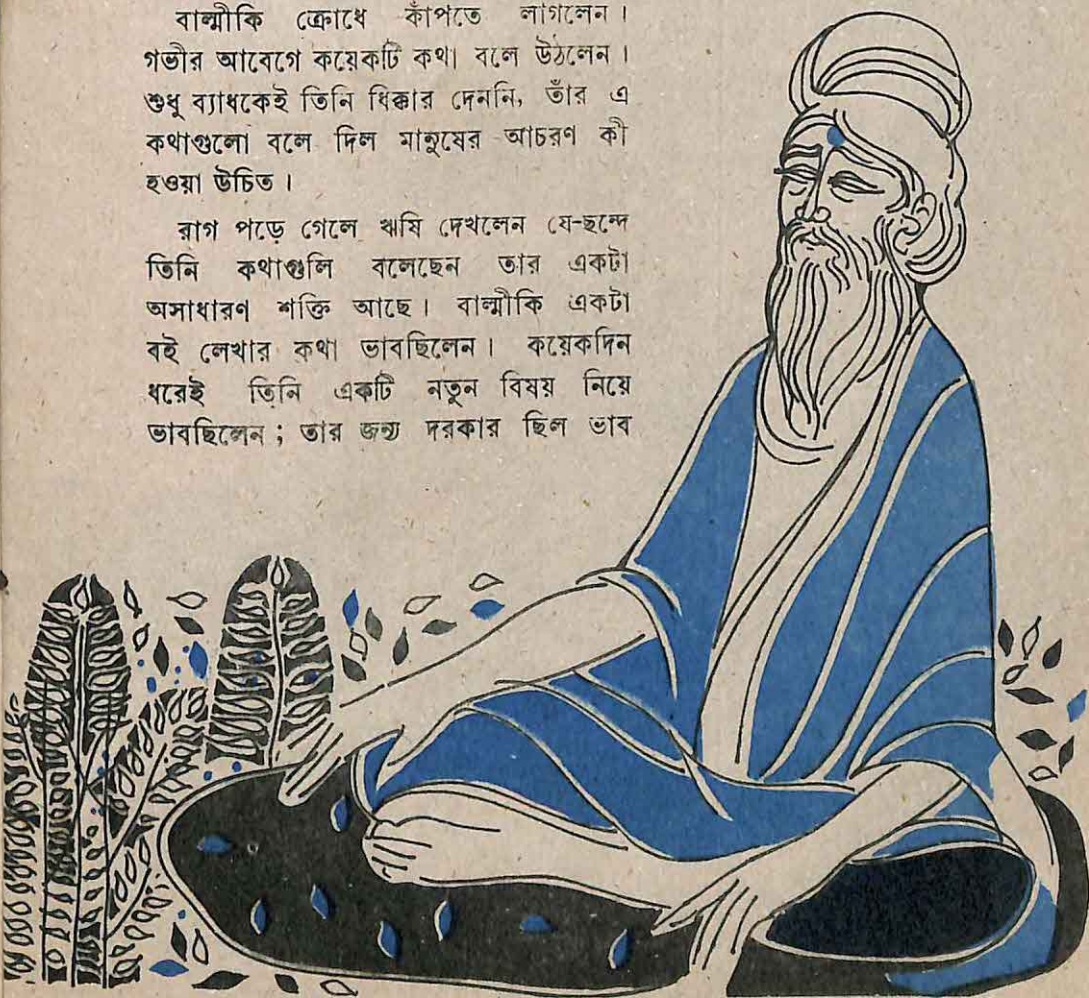 বাল্মীকি ক্রোধে কাঁপতে লাগলেন।
গভীর আবেগে কয়েকটি কথা বলে উঠলেন।
শুধু ব্যাধকেই তিনি ধিক্কার দেননি, তাঁর এ
কথাগুলো বলে দিল মানুষের আচরণ কী
হওয়া উচিত।
রাগ পড়ে গেলে ঋষি দেখলেন যে-ছন্দে
তিনি কথাগুলি বলেছেন তার একটা
অসাধারণ শক্তি আছে। বাল্মীকি একটা
বই লেখার কথা ভাবছিলেন। কয়েকদিন
ধরেই তিনি একটি নতুন বিষয় নিয়ে
ভাবছিলেন; তার জন্য দরকার ছিল ভাব